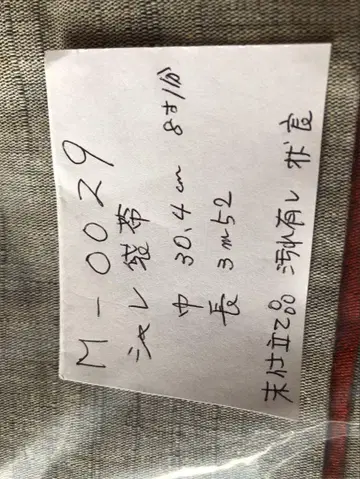 M-0029
シャレ袋帯
巾 30.4cm 8寸1分
長 3m52
未仕立て品 汚れ有し 状良